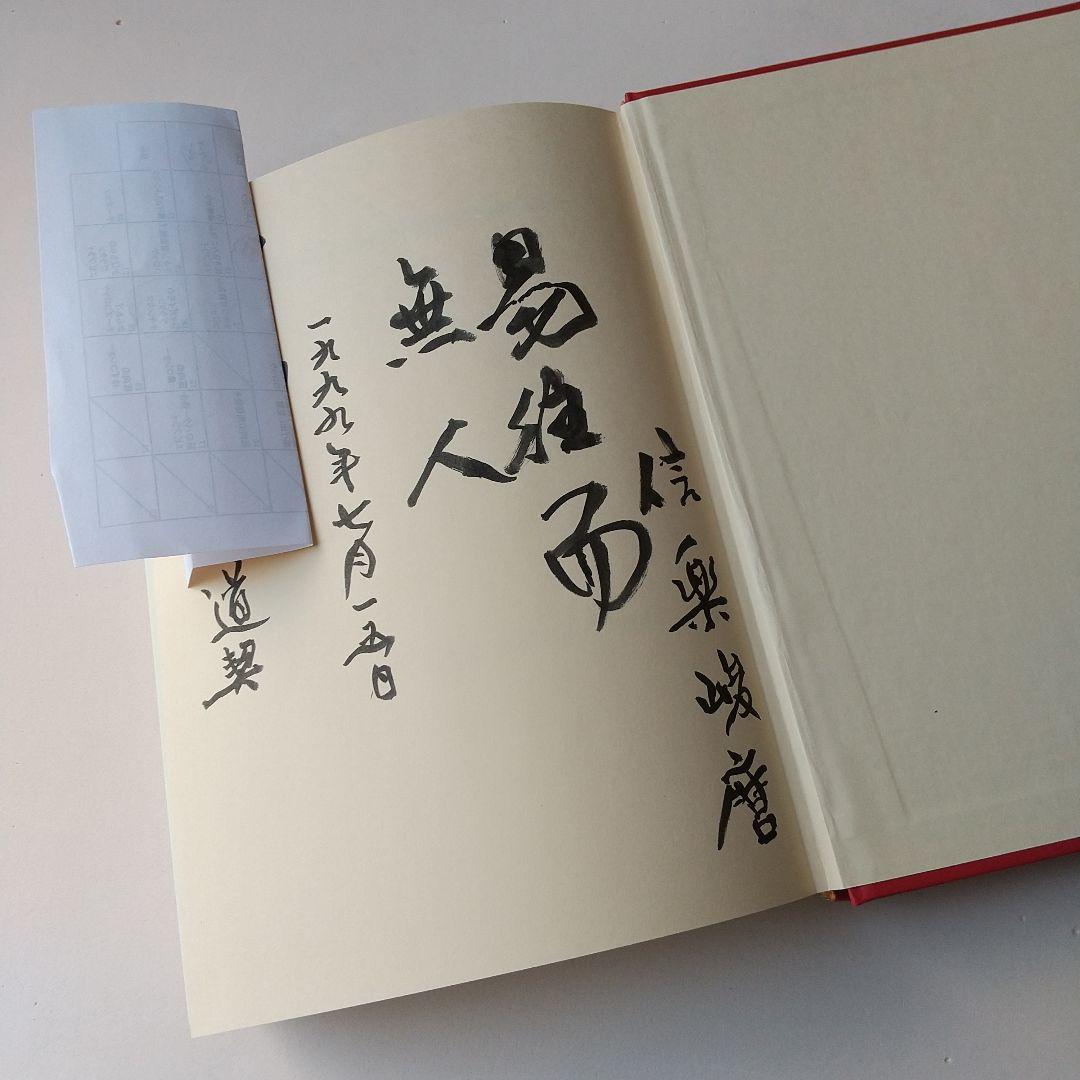 易往而
無人
信楽峻麿
一九九九年七月一五日
道契